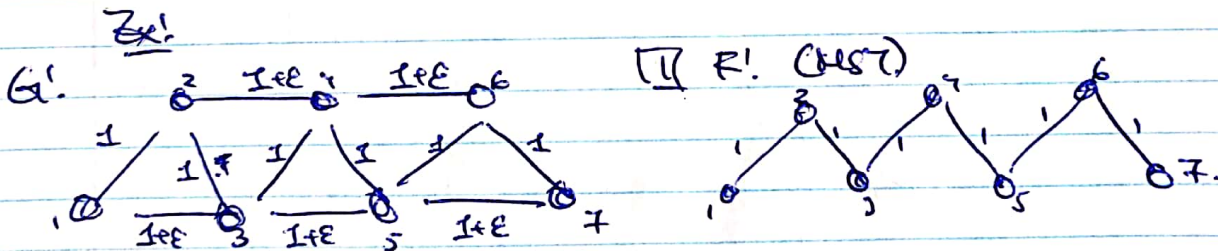 Ex!
G!
2 1+ε 4 1+ε 6
1 1 1 1 1 1
1 1+ε 3 1+ε 5 1+ε 7
1 F! (MST)
2 4 6
1 1 1 1 1 1
1 3 5 7.